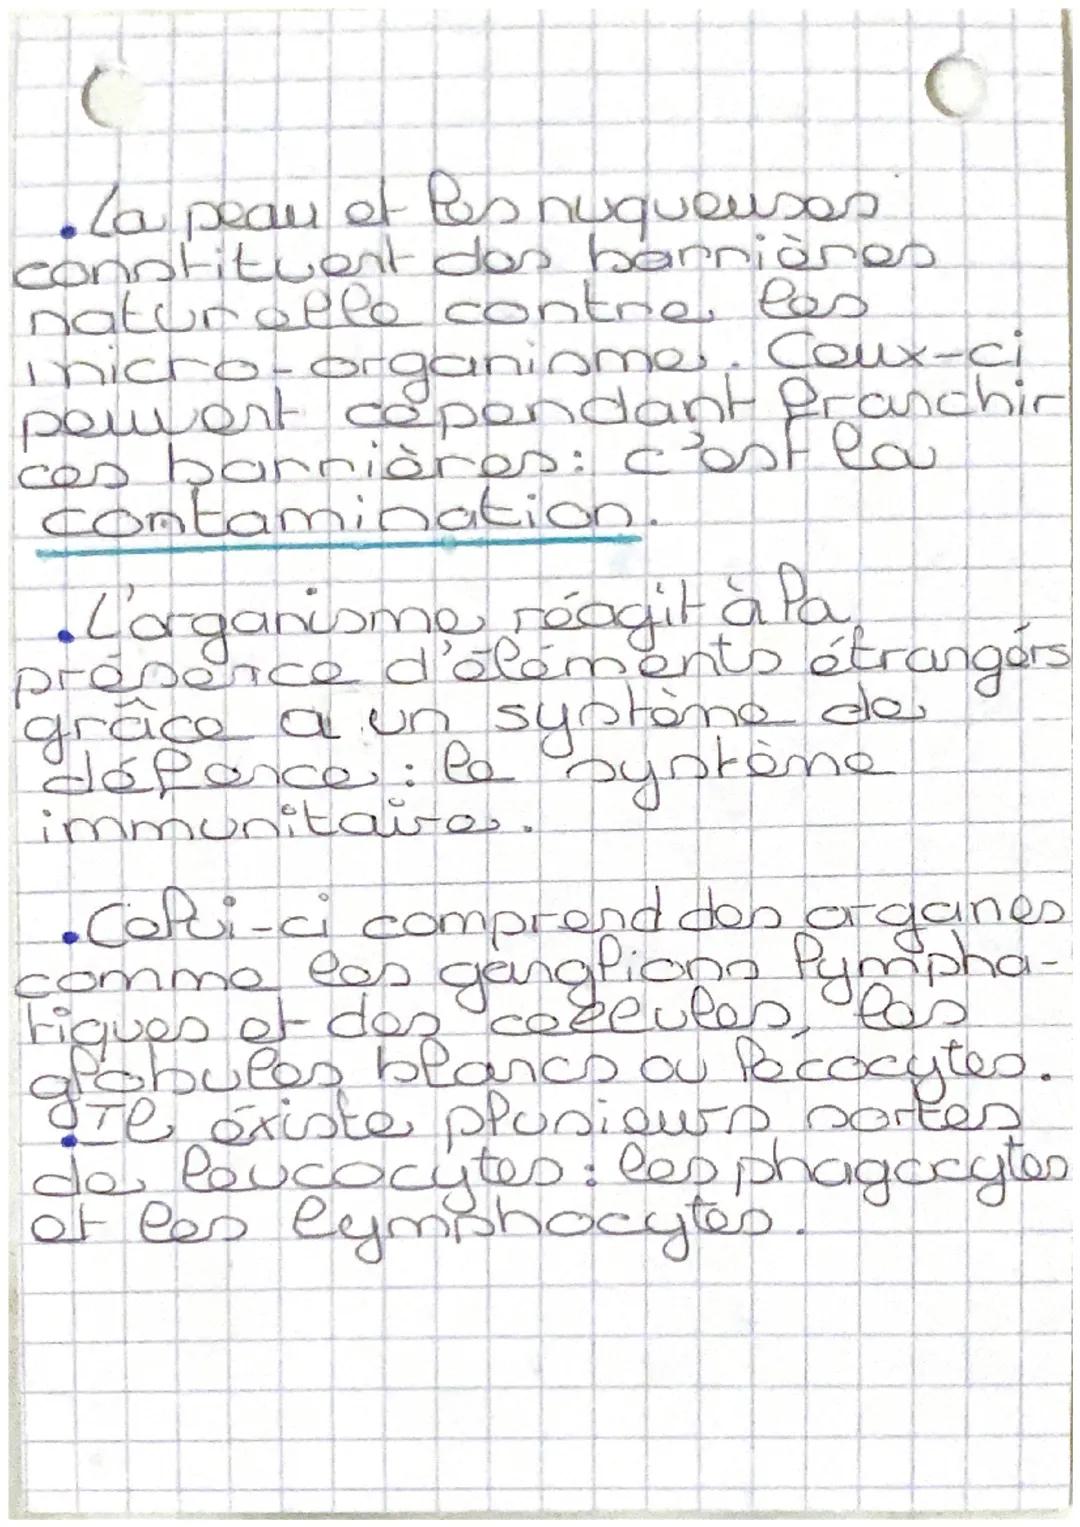 .La peau et les nuqueuses
constituent des barrières
naturelle contre les
micro-organisme. Ceux-ci
peuvent cependant franchir
ces barrières: c'est la
contamination.
.L'organisme réagit à la
présence d'éléments étrangérs
grâce a un système de
défence: le système
immunitaire.
.Celui-ci comprend des organes
comme les ganglions lympha-
tiques et des cellules, les
globules blancs ou lécocytes.
.Il éxiste plusieurs sortes
de leucocytes: les phagocytes
et les lymphocytes.